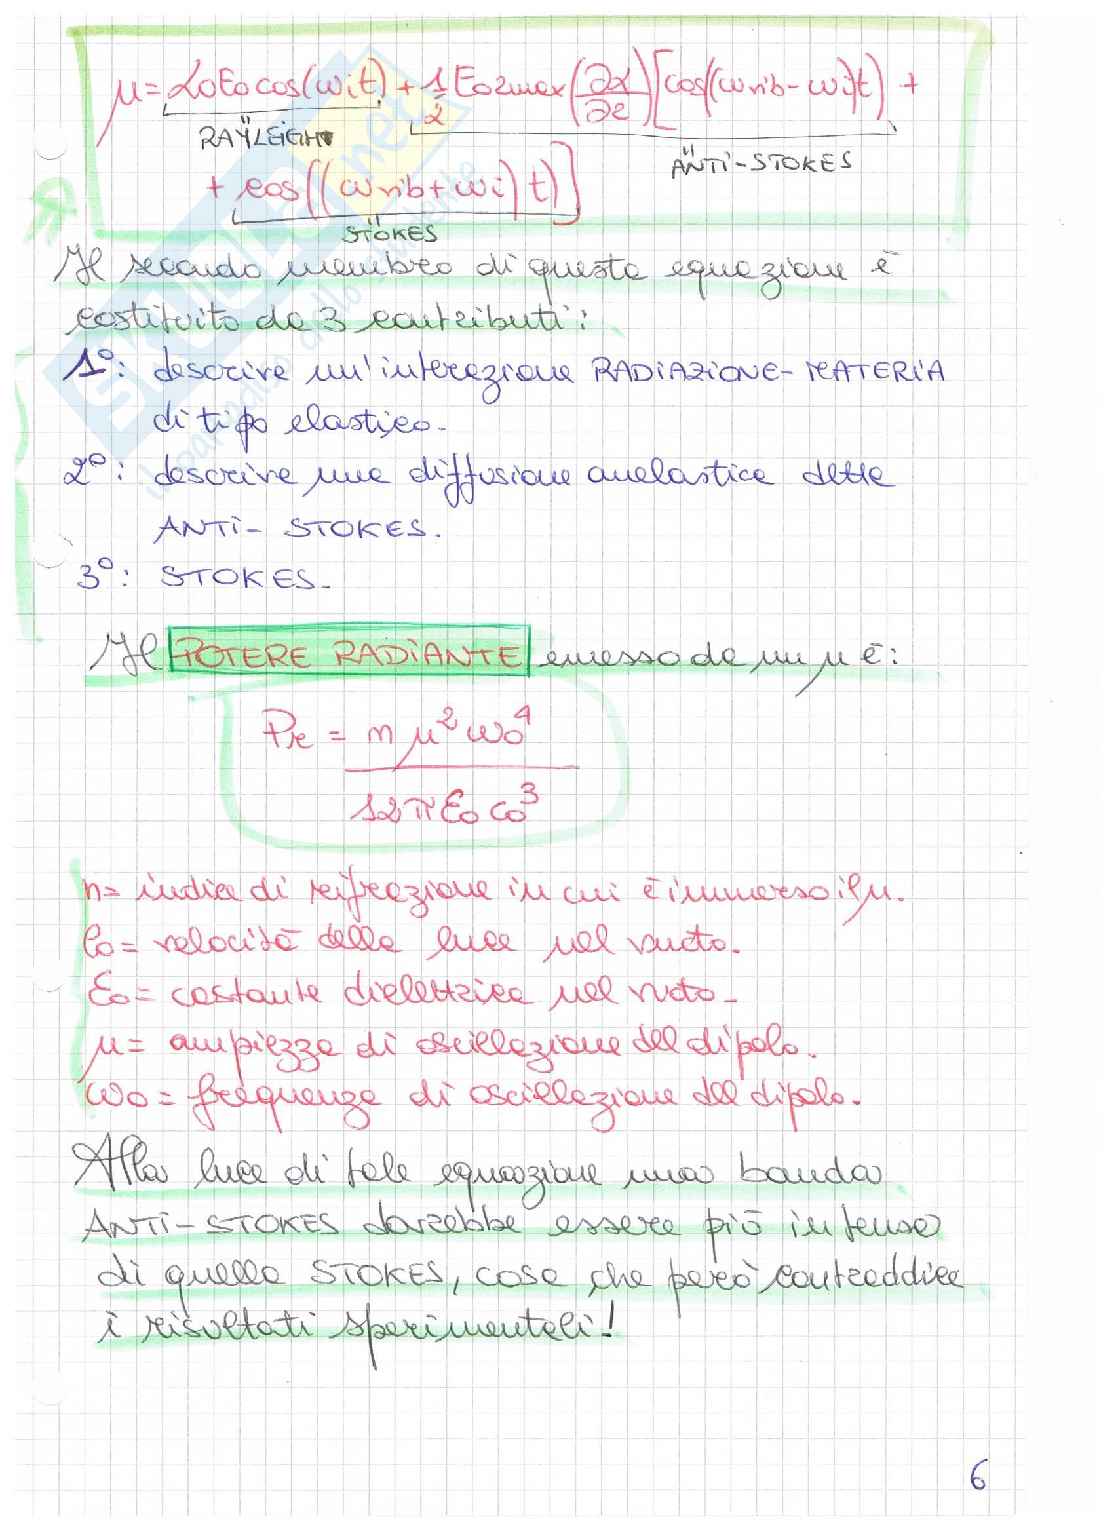 μ = α0E0cos(ωit) + 1/2 E0zmax (∂α/∂z) [cos((ωvib-ωi)t) +
RAYLEIGH
ANTI-STOKES
+ cos((ωvib+ωi)t)]
STOKES
Il secondo membro di questa equazione è
costituito da 3 contributi:
1°: descrive un'interazione RADIAZIONE-MATERIA
di tipo elastico.
2°: descrive una diffusione anelastica detta
ANTI-STOKES.
3°: STOKES.
Il POTERE RADIANTE emesso da un μ è:
Pr = n μ² ω0⁴
12πε0c0³
n= indice di rifrazione in cui è immerso il μ.
c0= velocità della luce nel vuoto.
ε0= costante dielettrica nel vuoto-
μ= ampiezza di oscillazione del dipolo.
ω0= frequenza di oscillazione del dipolo.
Alla luce di tale equazione una banda
ANTI-STOKES dovrebbe essere più intensa
di quella STOKES, cosa che però contraddice
i risultati sperimentali!
6